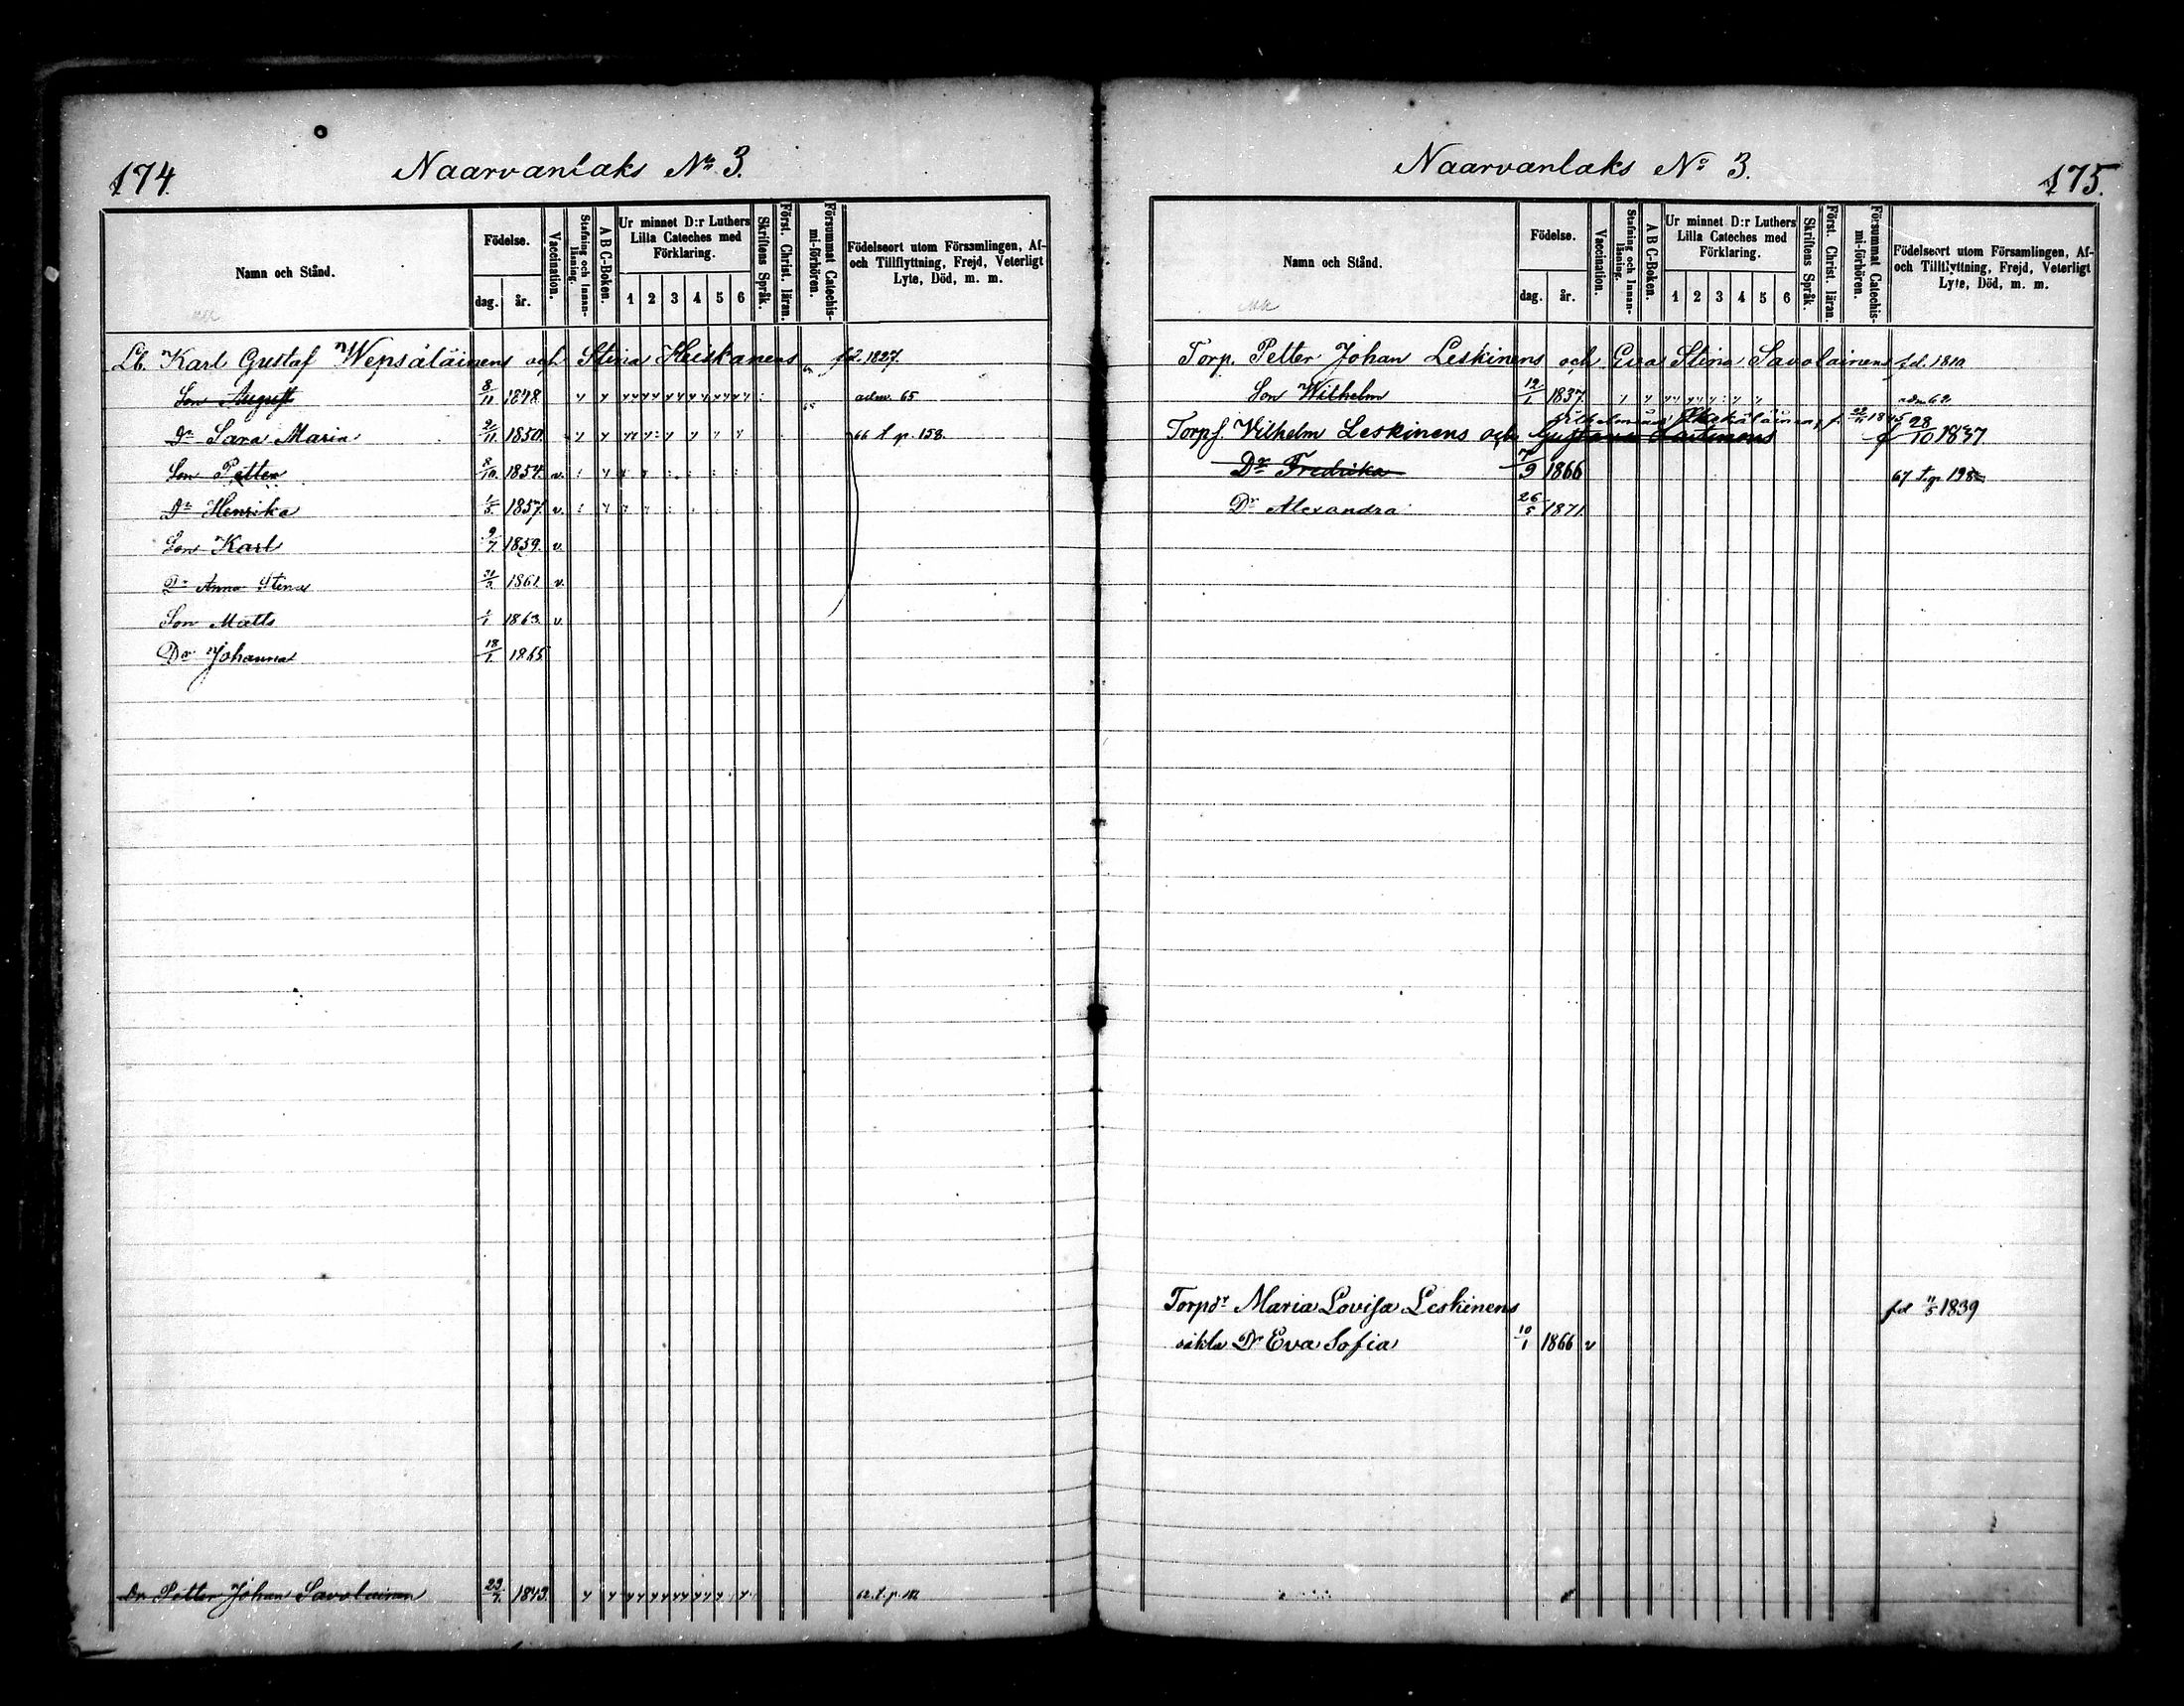 174.
Naarvanlaks No 3.
Namn och Stånd.
Födelse.
dag.
år.
Vaccination.
Stafning och Innan-läsning.
A B C-Boken.
Ur minnet D:r Luthers
Lilla Cateches med
Förklaring.
1 2 3 4 5 6
Skriftens Språk.
Först. Christ. läran.
Försummat Catechis-mi-förhören.
Födelseort utom Församlingen, Af-
och Tillflyttning, Frejd, Veterligt
Lyte, Död, m. m.
Lb. Karl Gustaf Wepsäläinens och Stina Heiskanens fd. 1827.
Son August 8/11 1848. adm. 65
Dr Sara Maria 2/11 1850. 66 t. p. 158.
Son Petter 8/10 1854. v.
Dr Henrika 1/5 1857. v.
Son Karl 9/7 1859. v.
Dr Anna Stina 31/3 1861 v.
Son Matts 1/1 1863. v.
Dr Johanna 18/1 1865
Dr. Petter Johan Savolainen 23/7 1843.
Naarvanlaks No 3.
175.
Namn och Stånd.
Födelse.
dag.
år.
Vaccination.
Stafning och Innan-läsning.
A B C-Boken.
Ur minnet D:r Luthers
Lilla Cateches med
Förklaring.
1 2 3 4 5 6
Skriftens Språk.
Först. Christ. läran.
Försummat Catechis-mi-förhören.
Födelseort utom Församlingen, Af-
och Tillflyttning, Frejd, Veterligt
Lyte, Död, m. m.
Torp. Petter Johan Leskinens och Eva Stina Savolainens fd. 1810
Son Wilhelm 12/1 1837. adm 62.
Torpf. Vilhelm Leskinens och f 28/10 1837
Dr Fredrika 7/9 1866 67 t. p.
Dr Alexandra 26/5 1871
Torpdr Maria Lovisa Leskinens fd 11/5 1839
oäkta Dr Eva Sofia 10/1 1866 v